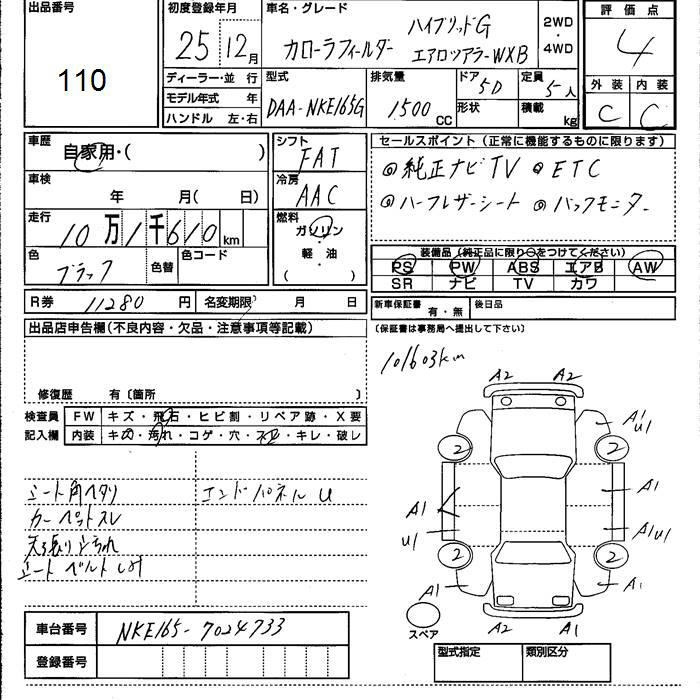 出品番号
110
初度登録年月
25年12月
車名・グレード
ハイブリッドG
カローラフィールダー エアロツアラーWXB
2WD
・
4WD
評価点
4
外装 内装
C C
ディーラー・並行
モデル年式 年
ハンドル 左・右
型式
DAA-NKE165G
排気量
1500 CC
ドア 5D
形状
定員 5人
積載 kg
車歴
自家用・( )
シフト
FAT
車検
年 月( 日)
冷房
AAC
走行
10万1千610km
燃料
ガソリン
・
軽・油
( )
色
ブラック
色替
色コード
R券 11280円
名変期限 月 日
セールスポイント(正常に機能するものに限ります)
◎純正ナビTV ◎ETC
◎ハーフレザーシート ◎バックモニター
装備品(純正品に限り○をつけてください)
PS PW ABS エアB AW
SR ナビ TV カワ
新車保証書 有・無
後日品
(保証書は事務局へ提出して下さい)
出品店申告欄(不良内容・欠品・注意事項等記載)
修復歴 有〔箇所 〕
検査員 FW キズ・飛石・ヒビ割・リペア跡・X要
記入欄 内装 キズ・汚れ・コゲ・穴・スレ・キレ・破レ
101603km
A2 A2
A1
U1
2 2
A1 A1
U1 A1U1
2 2
A1 A1
スペア
A2 A1
シート角ヘタリ エンドパネルU
カーペットスレ
天張りヨゴれ
シートベルト
車台番号 NKE165-7024733
登録番号
型式指定 類別区分